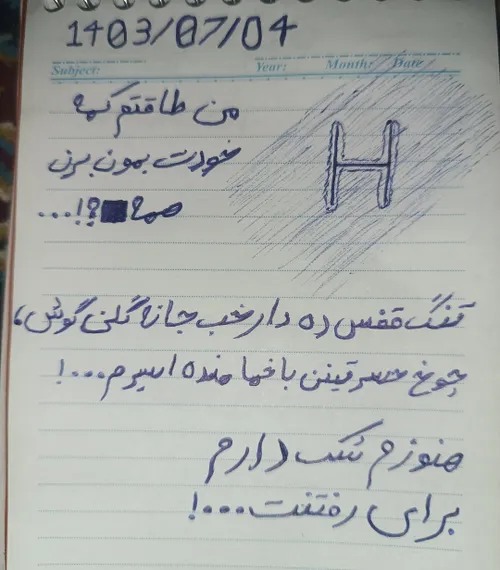 1403/07/04
Subject: Year: Month: Date
من طاقتم کمه
خودت بمون بزن
همه ؟!...
H
تنگ قفس ده دار خب جانه گلن گوش،
چوخ حسرتینن باخما منده اسیرم...!
هنوزم شک دارم
برای رفتنت...!